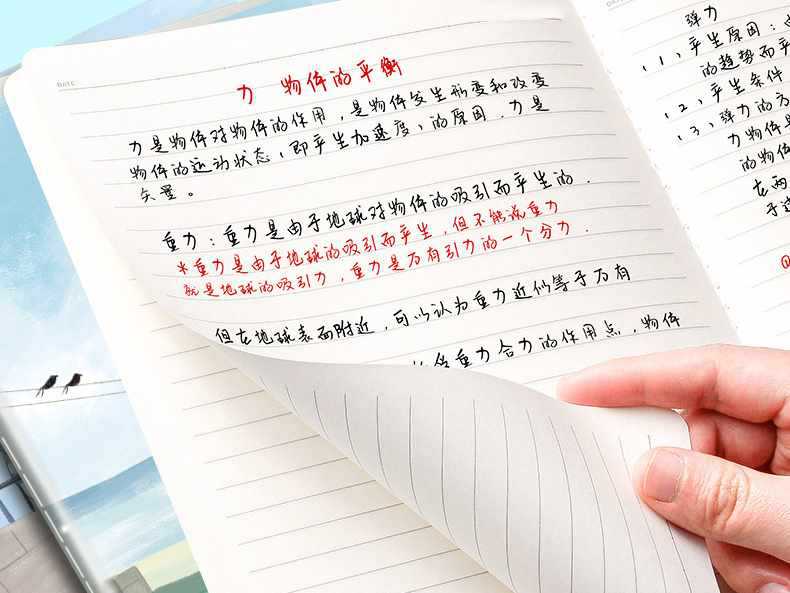 DATE
力 物体的平衡
力是物体对物体的作用，是物体发生形变和改变
物体的运动状态，（即产生加速度）的原因．力是
矢量。
重力：重力是由于地球对物体的吸引而产生的．
*重力是由于地球的吸引而产生，但不能说重力
就是地球的吸引力，重力是万有引力的一个分力．
但在地球表面附近，可以认为重力近似等于万有
重力合力的作用点，物体
弹力
(1)、产生原因：
的趋势而产
(2)、产生条件
(3)、弹力的方
力物体
的物体
在两
于